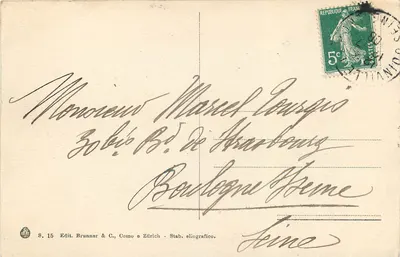 RÉPUBLIQUE FRANÇAISE
5c
POSTES
JOINVILLE
Monsieur Marcel Pourgis
30 bis Bd. de Strasbourg
Boulogne s/Seine
Seine
S. 15 Edit. Brunner & C., Como e Zürich - Stab. eliografico.